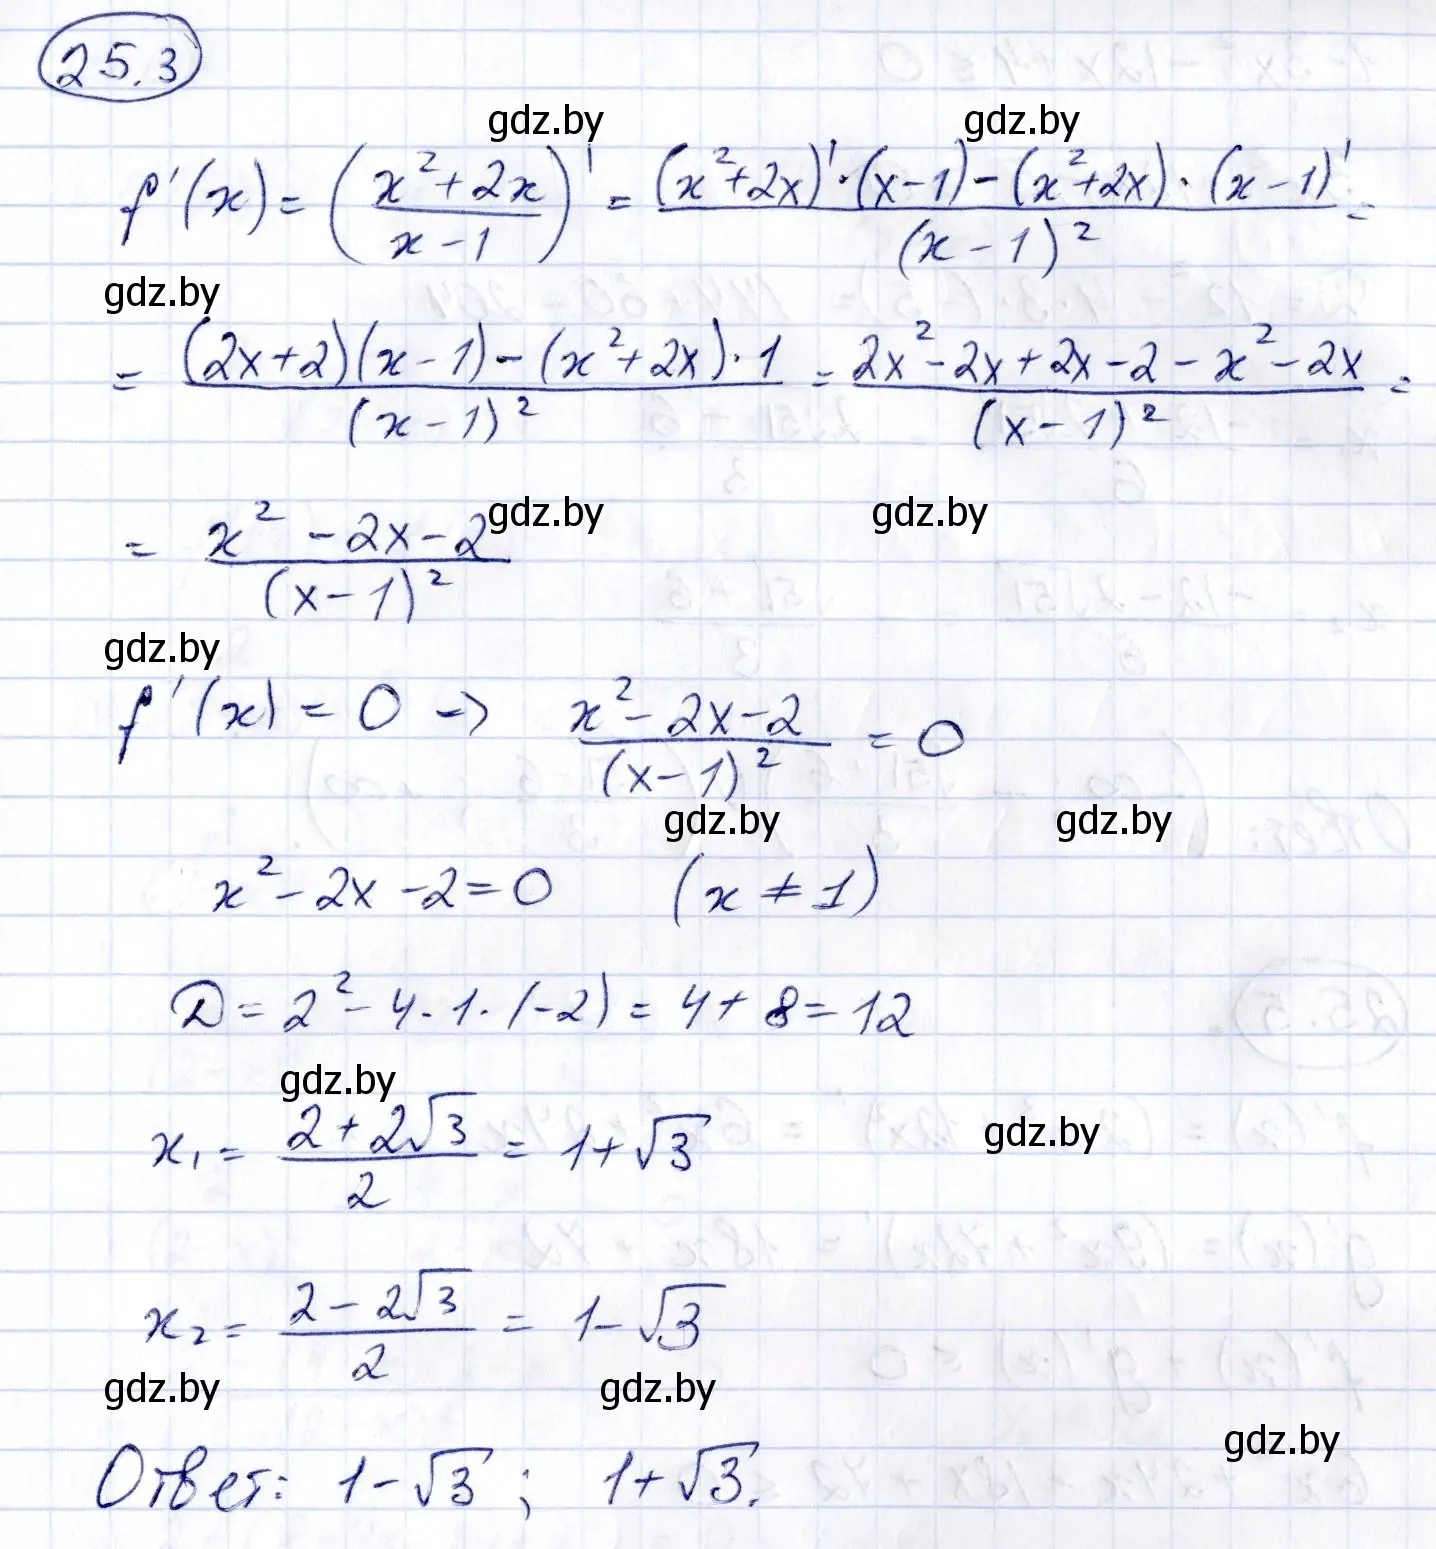 25.3
gdz.by gdz.by
f'(x) = ((x² + 2x)/(x - 1))' = ((x² + 2x)' · (x - 1) - (x² + 2x) · (x - 1)')/(x - 1)² =
gdz.by
= ((2x + 2)(x - 1) - (x² + 2x) · 1)/(x - 1)² = (2x² - 2x + 2x - 2 - x² - 2x)/(x - 1)² =
gdz.by gdz.by
= (x² - 2x - 2)/(x - 1)²
gdz.by
f'(x) = 0 -> (x² - 2x - 2)/(x - 1)² = 0
gdz.by gdz.by
x² - 2x - 2 = 0 (x ≠ 1)
D = 2² - 4 · 1 · (-2) = 4 + 8 = 12
gdz.by
x₁ = (2 + 2√3)/2 = 1 + √3
gdz.by
x₂ = (2 - 2√3)/2 = 1 - √3
gdz.by gdz.by
gdz.by
Ответ: 1 - √3 ; 1 + √3.